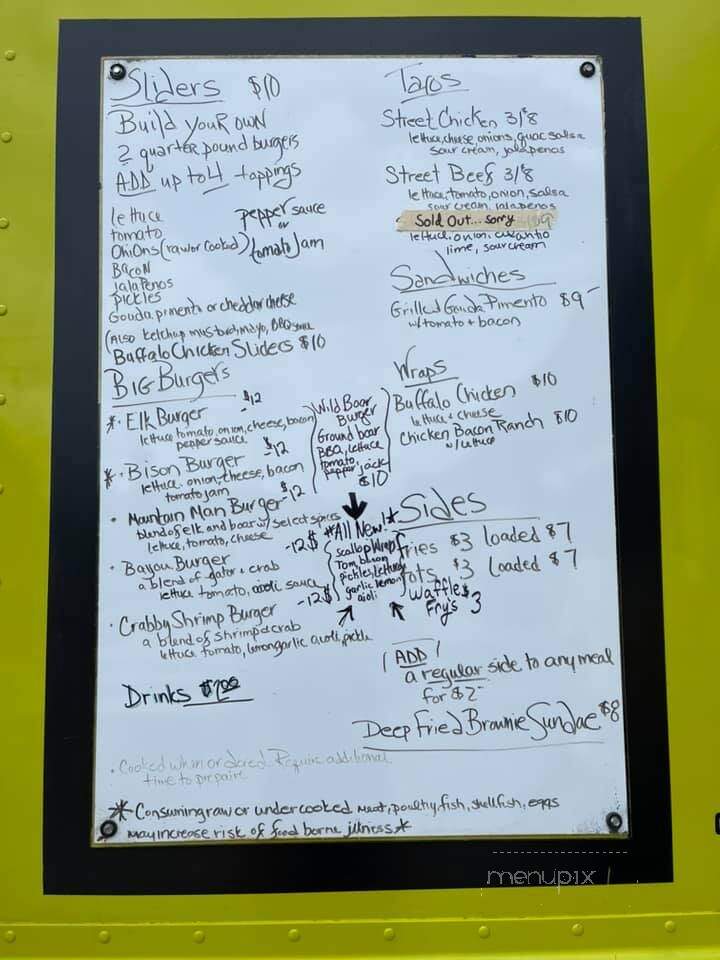 Sliders $10
Build Your Own
2 quarter pound burgers
ADD up to 4 toppings
lettuce
tomato
Onions (raw or cooked)
Bacon
Jalapenos
pickles
Gouda, pimento or cheddar cheese
pepper sauce
or
tomato Jam
(Also ketchup mustard, mayo, BBQ sauce
Buffalo Chicken Sliders $10
Big Burgers
* Elk Burger $12
lettuce tomato, onion, cheese, bacon
pepper sauce
* Bison Burger $12
lettuce, onion, cheese, bacon
tomato jam
Mountain Man Burger - $12
blend of elk and boar w/ select spices
lettuce, tomato, cheese
Bayou Burger - 12$
a blend of gator + crab
lettuce tomato, aioli sauce
Crabby Shrimp Burger - 12$
a blend of shrimp & crab
lettuce tomato, lemon garlic aioli, pickle
Wild Boar
Burger
Ground boar
BBQ, lettuce
tomato,
pepper jack
$10
*All New!*
Scallop Wrap
Tom, bacon
pickles, lettuce
garlic lemon
aioli
Drinks
Tacos
Street Chicken 3/$8
lettuce, cheese, onions, guac salsa
sour cream, jalapenos
Street Beef 3/$8
lettuce, tomato, onion, salsa
sour cream, jalapenos
Sold Out... sorry
lettuce, onion, cilantro
lime, sour cream
Sandwiches
Grilled Gouda Pimento $9
w/ tomato + bacon
Wraps
Buffalo Chicken $10
lettuce + cheese
Chicken Bacon Ranch $10
w/ lettuce
Sides
fries $3 loaded $7
tots $3 loaded $7
Waffle $
Fry's 3
(ADD)
a regular side to any meal
for $2
Deep Fried Brownie Sundae $8
. Cooked when ordered. Require additional
time to prepare
* Consuming raw or undercooked meat, poultry, fish, shellfish, eggs
may increase risk of food borne illness *
menupix